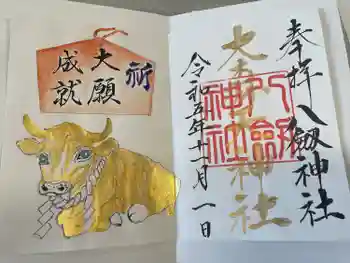 祈
大願
成就
奉拝 八剱神社
大青幡神社
八剱
神社
令和五年十二月一日